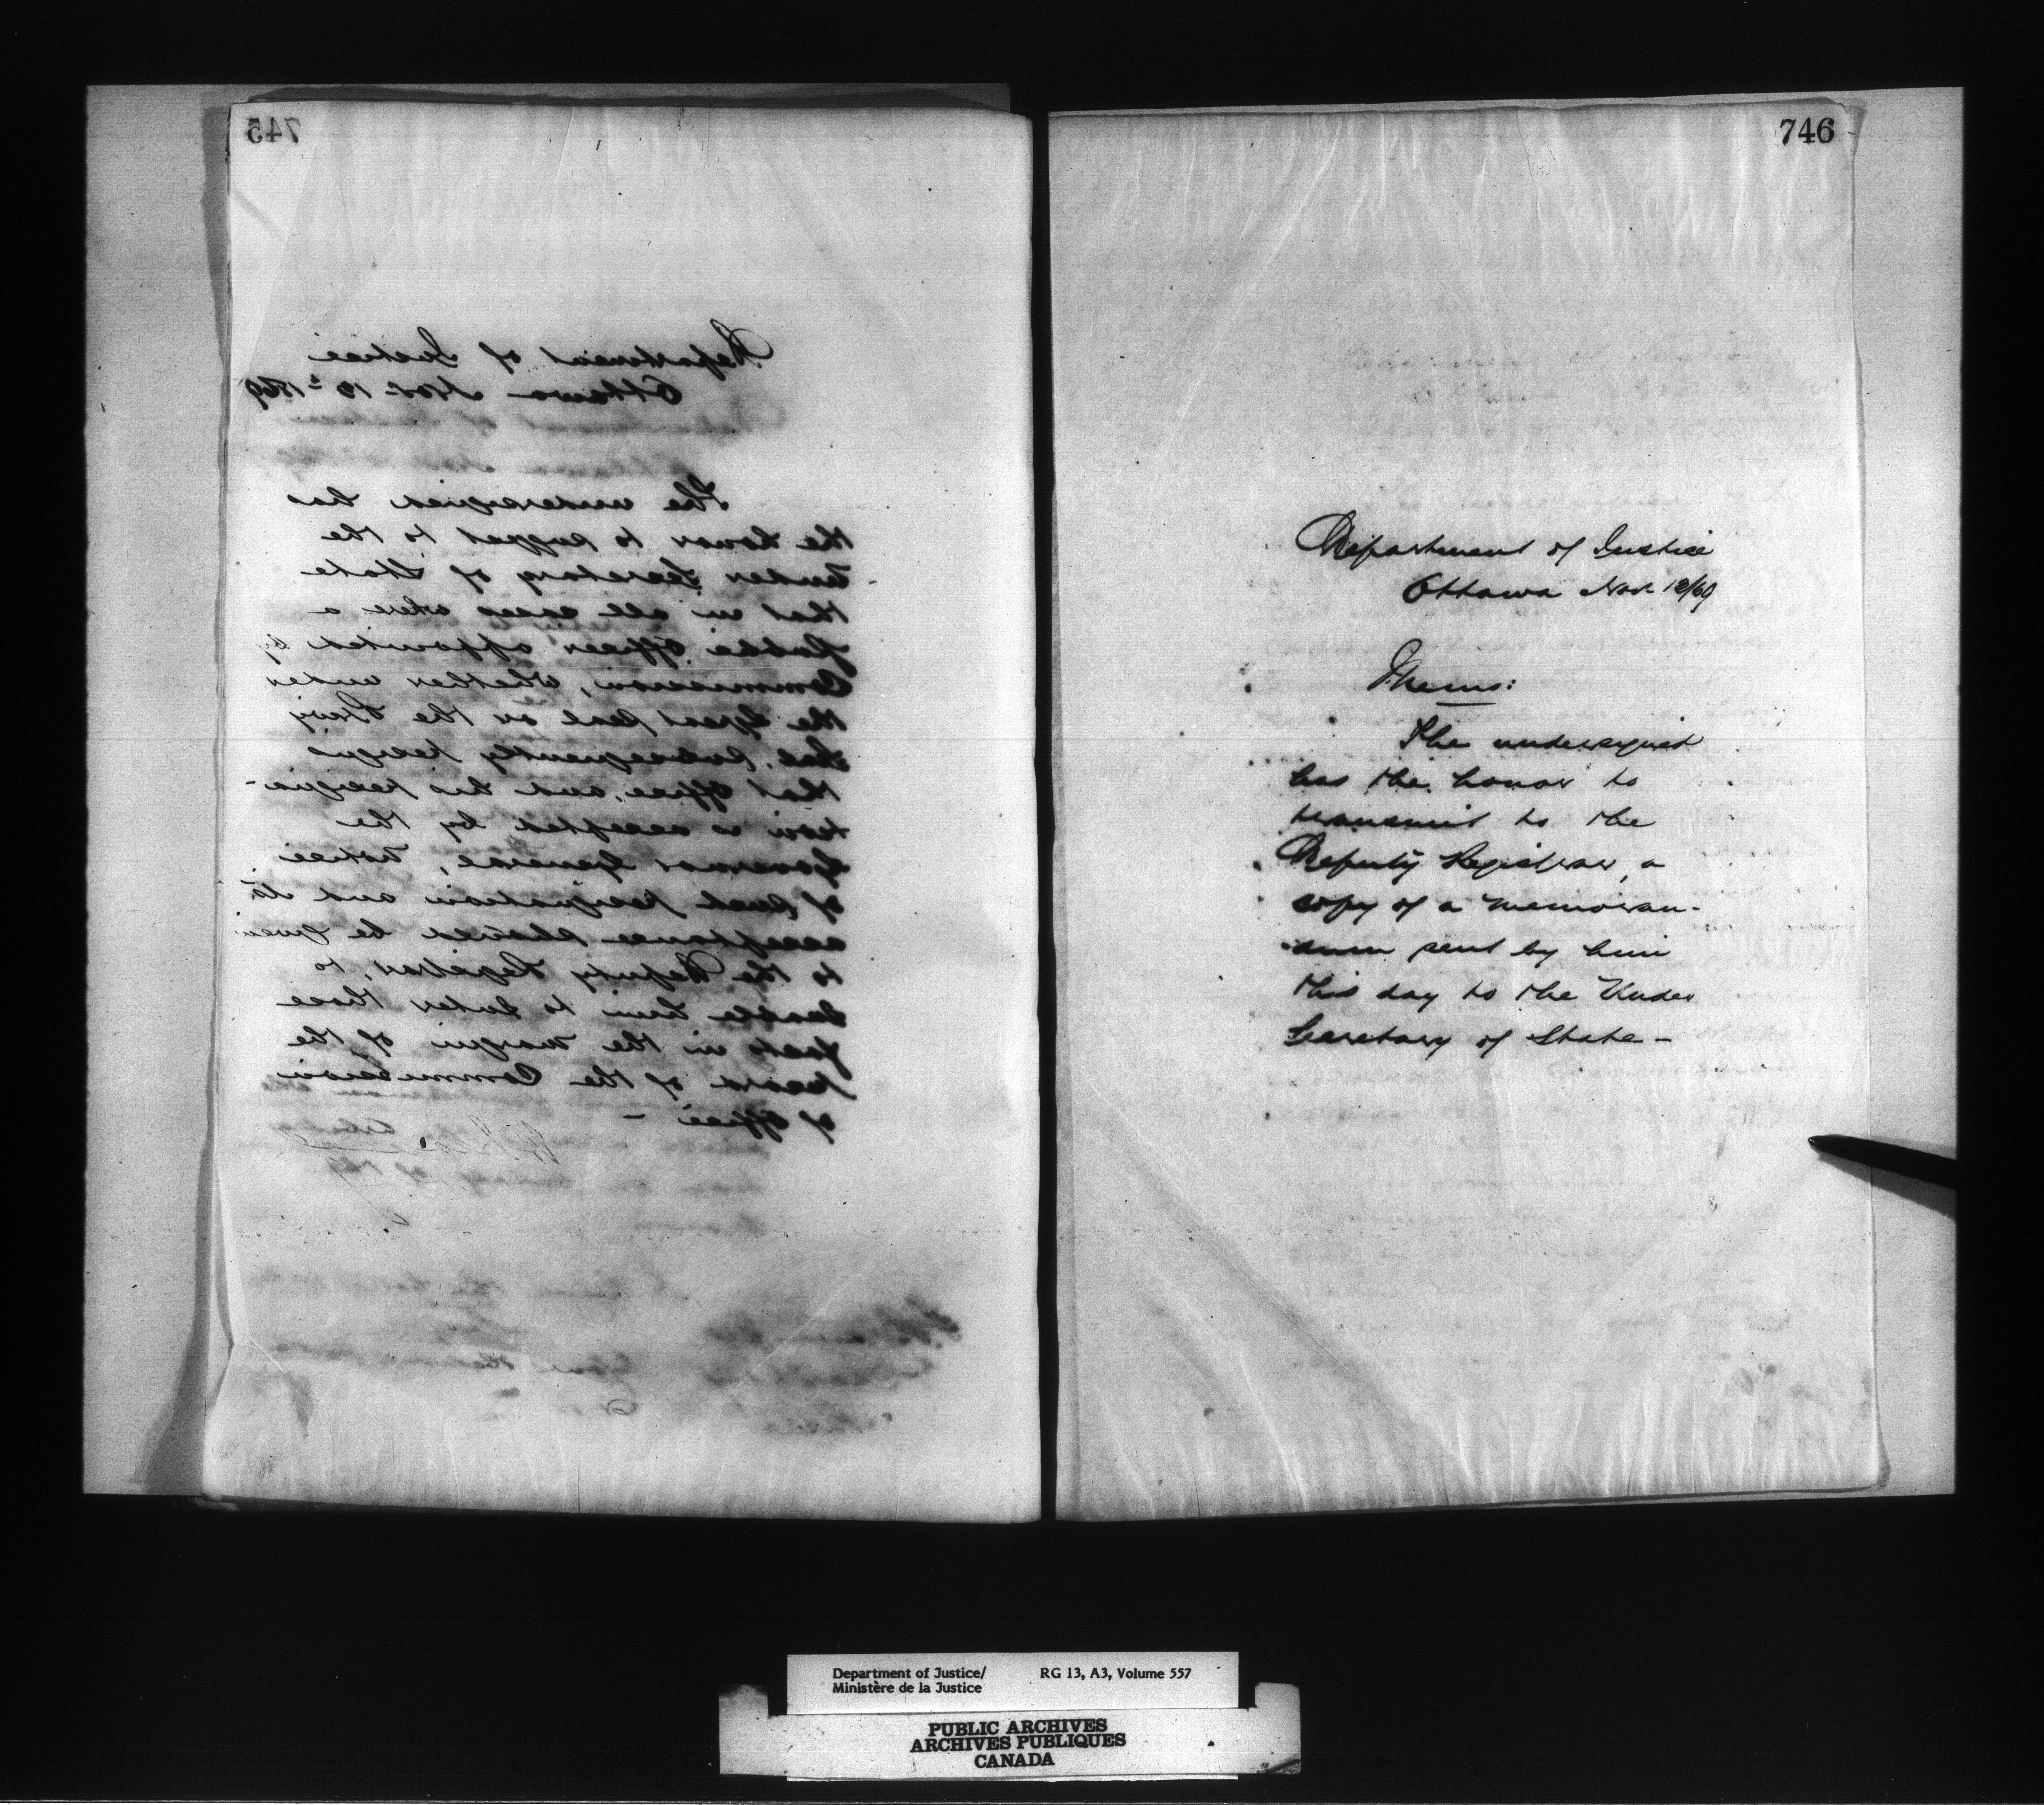 745
Department of Justice
Ottawa Nov. 18th 1869
The undersigned has
the honor to suggest to the
Under Secretary of State
that in all cases where a
public Officer appointed by
Commission, whether under
the Great Seal or the Privy
Seal, subsequently resigns
that Office, and his resigna-
tion is accepted by the
Governor General, notice
of such resignation and its
acceptance should be given
to the Deputy Registrar, to
enable him to enter those
facts in the margin of the
record of the Commission
of Office -
746
Department of Justice
Ottawa Nov. 18/69
Memo:
The undersigned
has the honor to
transmit to the
Deputy Registrar, a
copy of a memoran-
dum sent by him
this day to the Under
Secretary of State -
Department of Justice/
Ministère de la Justice
RG 13, A3, Volume 557
PUBLIC ARCHIVES
ARCHIVES PUBLIQUES
CANADA